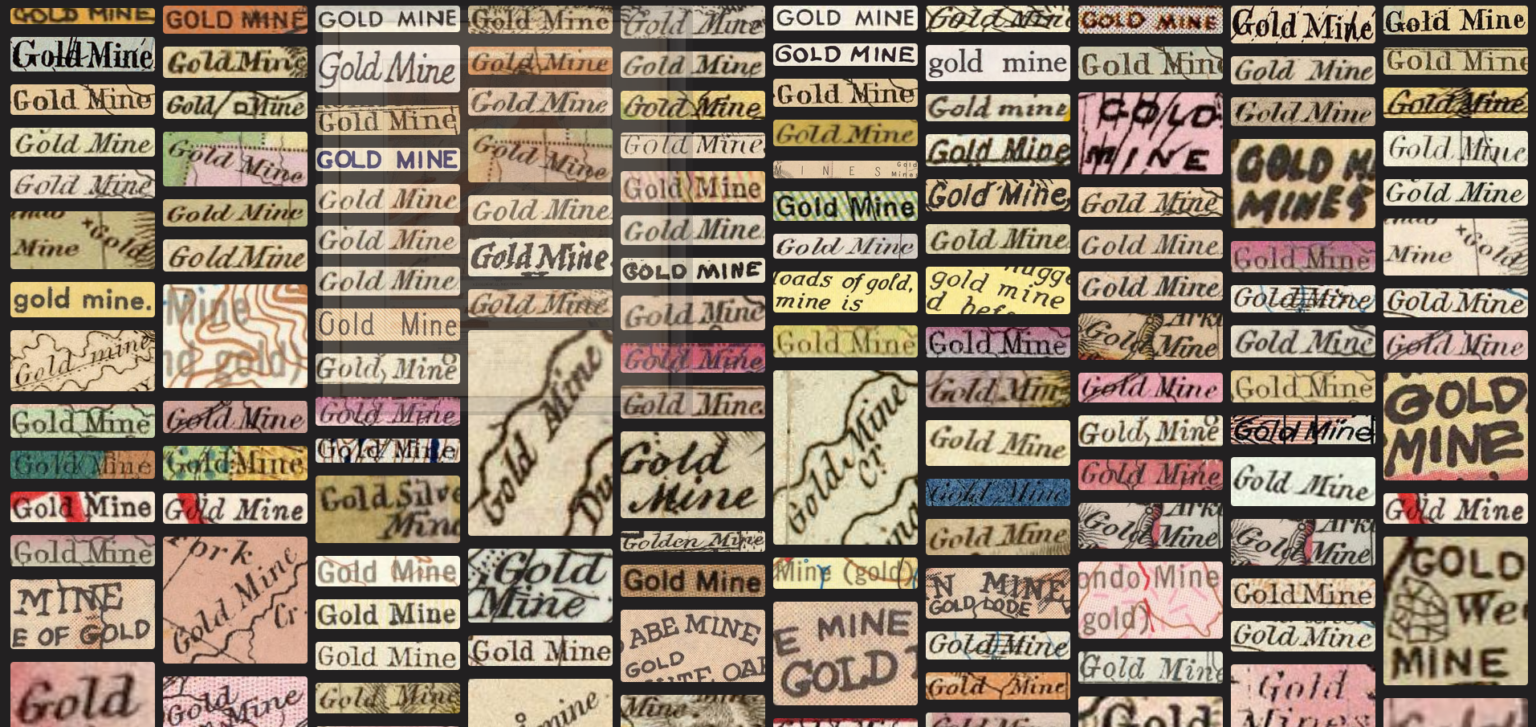 GOLD MINE
Gold Mine
Gold Mine
Gold Mine
Gold Mine
Mine
Gold
gold mine.
Gold mine
Gold Mine
Gold Mine
Gold Mine
Gold Mine
MINE
E OF GOLD
Gold
GOLD MINE
Gold Mine
Gold Mine
Gold Mine
Gold Mine
Gold Mine
Mine
nd gold)
Gold Mine
Gold Mine
Gold Mine
Fork
Gold Mine
Cr.
Gold Mine
GOLD MINE
Gold Mine
Gold Mine
GOLD MINE
Gold Mine
Gold Mine
Gold Mine
Gold Mine
Gold Mine
Gold Mine
Gold Mine
Gold Silve
Mine
Gold Mine
Gold Mine
Gold Mine
Gold Mine
Gold Mine
Gold Mine
Gold Mine
Gold Mine
Gold Mine
Gold Mine
Gold Mine
Gold Mine
Du
Gold
Mine
Gold Mine
mine
Gold Mine
Gold Mine
Gold Mine
Gold Mine
Gold Mine
Gold Mine
GOLD MINE
Gold Mine
Gold Mine
Gold Mine.
Gold
Mine
Golden Mine
Gold Mine
ABE MINE
GOLD
Mine.
GOLD MINE
GOLD MINE
Gold Mine
Gold Mine
MINES
Gold
Mines
Gold Mine
Gold Mine
loads of gold,
mine is
Gold Mine
Gold Mine
Cr.
Mine (gold)
E MINE
GOLD
Gold Mine
gold mine
Gold mine
Gold Mine
Gold Mine
Gold Mine
nugge
gold mine
d befo
Gold Mine
Gold Mine
Gold Mine
Gold Mine
Gold Mine
N MINE
GOLD LODE
Gold Mine
Gold Mine
GOLD MINE
Gold Mine
GOLD
MINE
Gold Mine
Gold Mine
Gold Mine
Arka
Gold Mine
Gold Mine
Gold, Mine
Gold Mine
Arka
Gold Mine
ondo Mine
gold)
Gold Mine
Gold
Gold Mine
Gold Mine
Gold Mine
GOLD M
MINES
Gold Mine
Gold Mine
Gold Mine
Gold Mine
Gold Mine
Gold Mine
Arka
Gold Mine
Gold Mine
Gold Mine
Gold
Mines
Gold Mine
Gold Mine
Gold Mine
Gold Mine
Gold Mine
Mine
Gold
Gold Mine
Gold Mine
GOLD
MINE
Gold Mine
GOLD
We
MINE